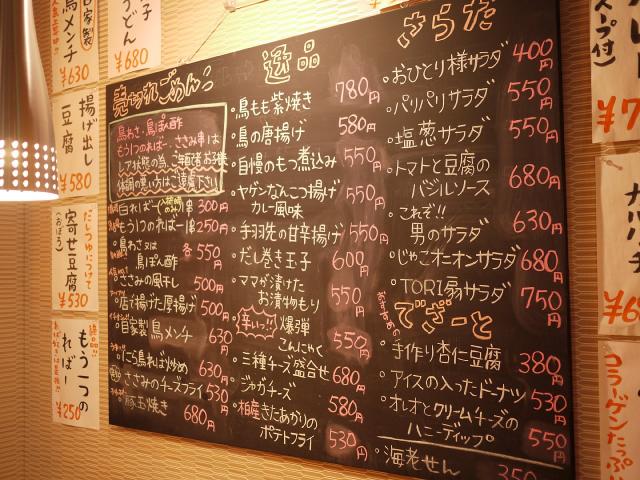 自家製
鳥メンチ
¥630
子
うどん
¥680
揚げ出し
豆腐
¥580
だしつゆにつけて
寄せ豆腐
(おぼろ)
¥530
絶品!!
もう一つの
ればー
¥250
売切れごめん
鳥わさ・鳥ぽん酢
もうひつのればー、ささみ串は
レア状態の為、ご年配者お子様
体調の悪い方はご遠慮下さい
白ればー串 300円
もう1つのればー串 250円
鳥わさ又は
鳥ぽん酢 各550円
ささみの風干し 500円
店で揚げた厚揚げ 500円
自家製 鳥メンチ 630円
にら鳥れば炒め 630円
ささみのチーズフライ 530円
豚玉焼き 680円
逸品
鳥もも紫焼き 780円
鳥の唐揚げ 580円
自慢のもつ煮込み 550円
ヤゲンなんこつ揚げ
カレー風味 550円
手羽先の甘辛揚げ 550円
だし巻き玉子 600円
ママが漬けた
お漬物もり 550円
辛いっ!! 爆弾
こんにゃく 550円
三種チーズ盛合せ 680円
ジャガチーズ 580円
柏産きたあかりの
ポテトフライ 530円
さらだ
おひとり様サラダ 400円
パリパリサラダ 550円
塩葱サラダ 550円
トマトと豆腐の
バジルソース 680円
これぞ!!
男のサラダ 630円
じゃこオーオンサラダ 680円
TORI扇サラダ 750円
おすすめの
でざーと
手作り杏仁豆腐 380円
アイスの入ったドーナツ 530円
オレオとクリームチーズの
ハニーディップ 550円
海老せん 350
スープ付)
¥7
¥6
コラーゲンたっぷり